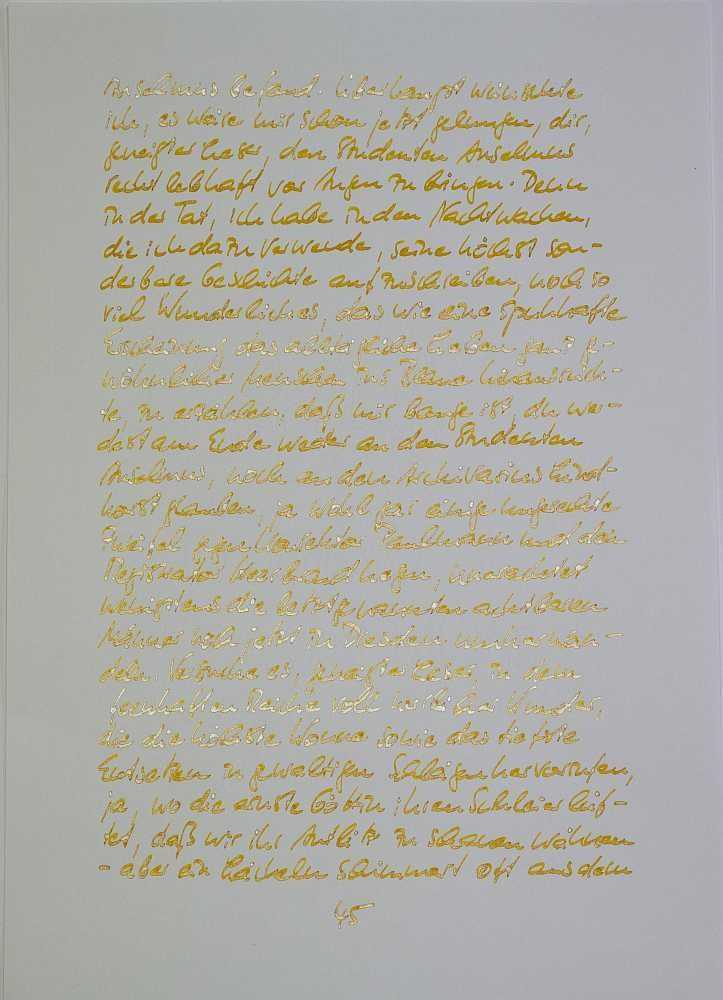 Anselmus befand. Überhaupt wünschte
ich, es wäre mir schon jetzt gelungen, dir,
geneigter Leser, den Studenten Anselmus
recht lebhaft vor Augen zu bringen. Denn
in der Tat, ich habe in den Nachtwachen,
die ich dazu verwende, seine höchst son-
derbare Geschichte aufzuschreiben, noch so
viel Wunderliches, das wie eine spukhafte
Erscheinung das alltägliche Leben ganz ge-
wöhnlicher Menschen ins Blaue hinausrück-
te, zu erzählen, daß mir bange ist, du wer-
dest am Ende weder an den Studenten
Anselmus, noch an den Archivarius Lind-
horst glauben, ja wohl gar einige ungerechte
Zweifel gegen Konrektor Paulmann und den
Registrator Heerbrand hegen, unerachtet
wenigstens die letztgenannten achtbaren
Männer noch jetzt in Dresden umherwan-
deln. Versuche es, geneigter Leser, in dem
feenhaften Reiche voll herrlicher Wunder,
die die höchste Wonne sowie das tiefste
Entsetzen in gewaltigen Schlägen hervorrufen,
ja, wo die ernste Göttin ihren Schleier lüf-
tet, daß wir ihr Antlitz zu schauen wähnen
- aber ein Lächeln schimmert oft aus dem
45